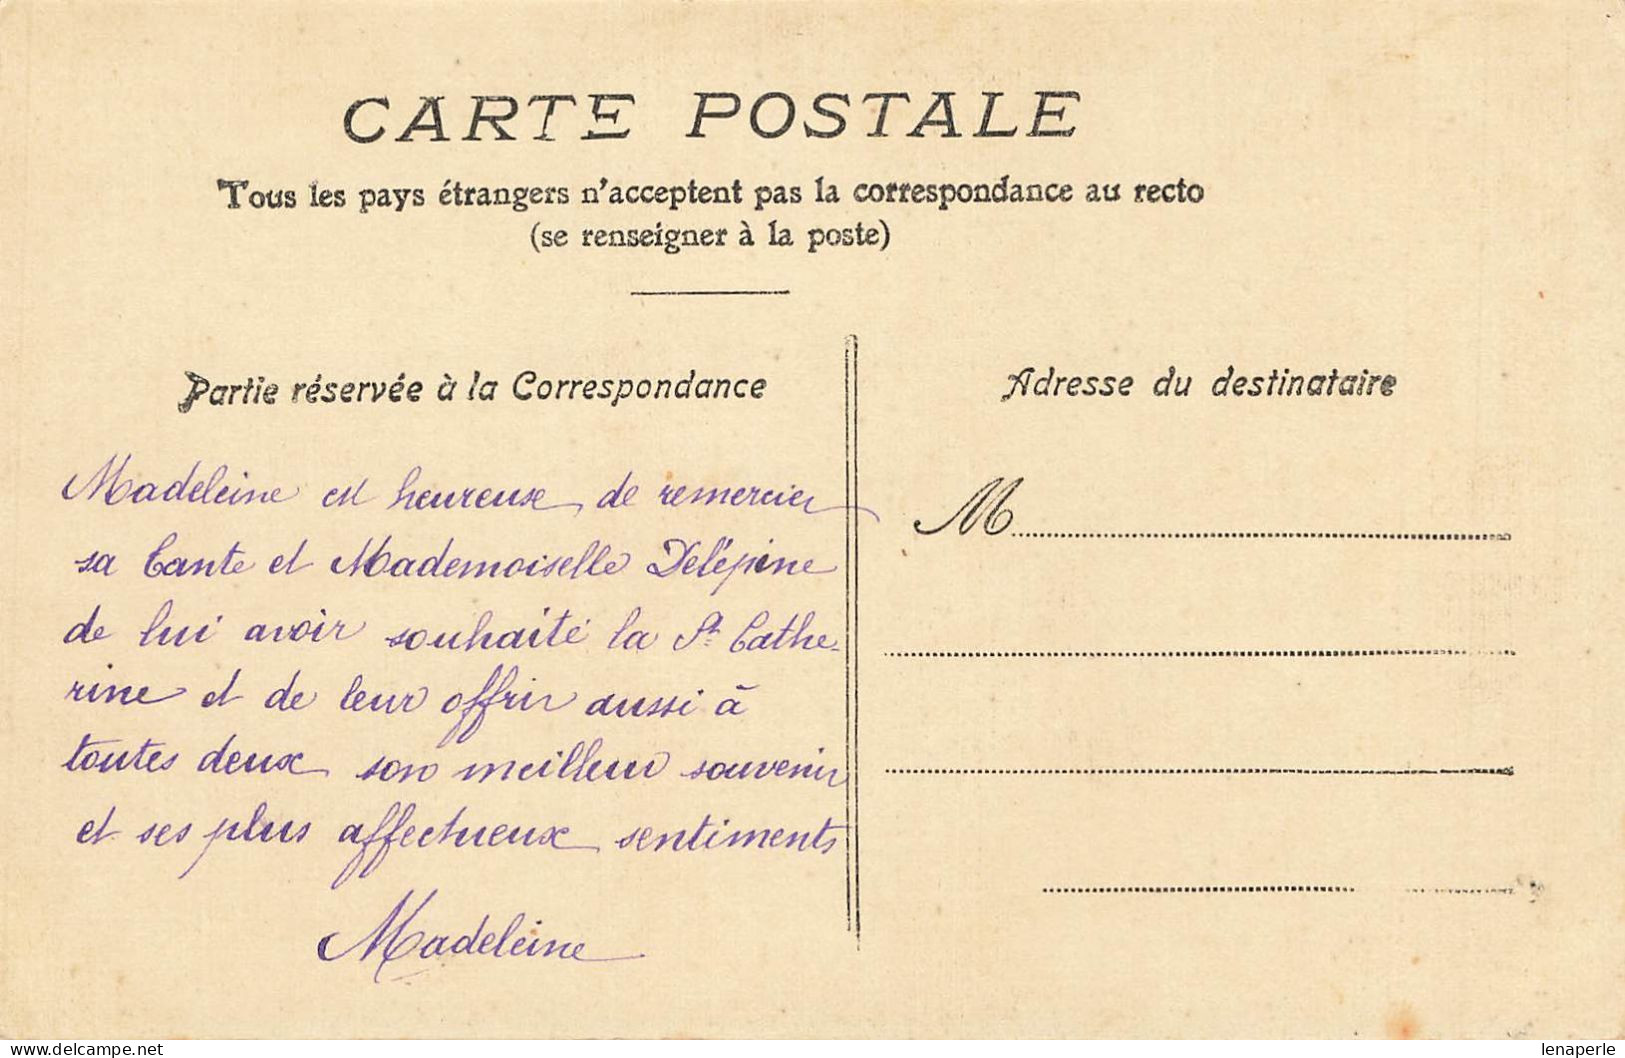 CARTE POSTALE
Tous les pays étrangers n'acceptent pas la correspondance au recto
(se renseigner à la poste)
Partie réservée à la Correspondance
Madeleine est heureuse de remercier
sa tante et Mademoiselle Delépine
de lui avoir souhaité la St Cathe-
rine et de leur offrir aussi à
toutes deux son meilleur souvenir
et ses plus affectueux sentiments
Madeleine
Adresse du destinataire
M
delcampe.net
lenaperle